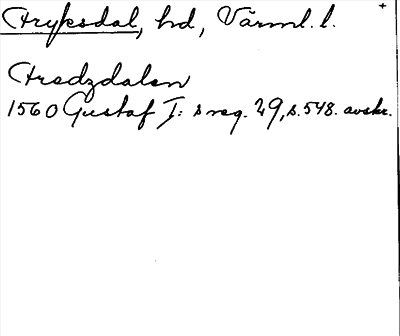 Fryksdal, hd, Värml. l. +
Fredzdalen
1560 Gustaf I: s reg. 29, s. 548. avskr.